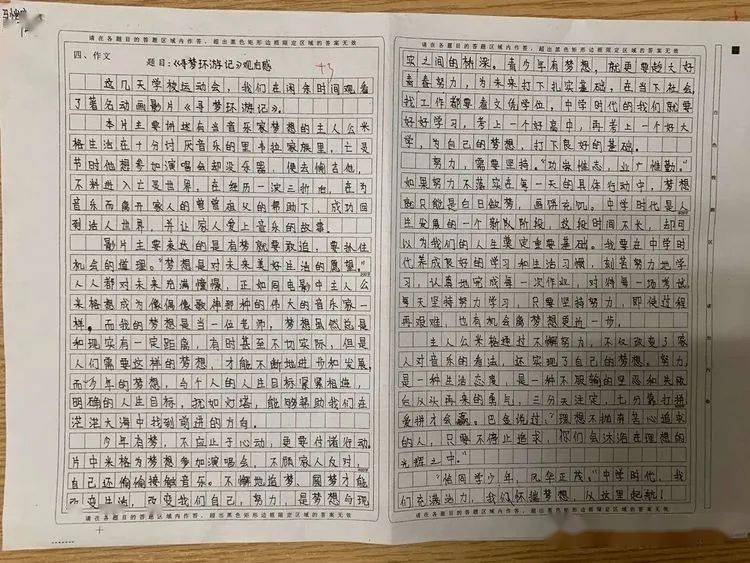 请在各题目的答题区域内作答，超出黑色矩形边框限定区域的答案无效
四、作文
题目：《寻梦环游记》观后感
这几天学校运动会，我们在闲余时间观看
了著名动画影片《寻梦环游记》。
本片主要讲述有当音乐家梦想的主人公米
格生活在十分讨厌音乐的里韦拉家族里，亡灵
节时他想参加演唱会却没乐器，便去偷吉他，
不料进入亡灵世界，在经历一波三折后，在为
音乐而离开家人的曾曾祖父的帮助下，成功回
到活人世界，并让家人爱上音乐的故事。
影片主要表达的是有梦就要敢追，要抓住
机会的道理。“梦想是对未来美好生活的愿望”，
人人都对未来充满憧憬，正如同电影中主人公
米格想成为像偶像歌神那种的伟大的音乐家一
样。而我的梦想是当一位老师，梦想虽然总是
和现实有一定距离，有时甚至不切实际，但是
人们需要这样的梦想，才能不断地进步和发展。
而少年的梦想，与个人的人生目标紧紧相连，
明确的人生目标，犹如灯塔，能够帮助我们在
茫茫大海中找到前进的方向。
少年有梦，不应止于心动，更要付诸行动。
片中米格为梦想参加演唱会，不顾家人反对，
自己还偷偷接触音乐。不懈地追梦、圆梦才能
改变生活，改变我们自己，努力，是梦想与现
请在各题目的答题区域内作答，超出黑色矩形边框限定区域的答案无效
请在各题目的答题区域内作答，超出黑色矩形边框限定区域的答案无效
实之间的桥梁。青少年有梦想，就更要趁大好
青春努力，为未来打下扎实基础，在当下社会，
找工作都要看文凭学位，中学时代的我们就要
好好学习，考上一个好高中，再考上一个好大
学，为自己的梦想，打下良好的基础。
努力，需要坚持。“功崇惟志，业广惟勤。”
如果努力不落实在每一天的具体行动中，梦想
就只能是白日做梦，画饼充饥。中学时代是人
生发展的一个新的阶段，这段时间不长，却可
以为我们的人生奠定重要基础。我要在中学时
代养成良好的学习和生活习惯，刻苦努力地学
习，认真地完成每一次作业，对待每一场考试，
每天坚持努力学习，只要坚持努力，即使过程
再艰难，也有机会离梦想更近一步。
主人公米格通过不懈努力，不仅改变了家
人对音乐的看法，还实现了自己的梦想。努力，
是一种生活态度，是一种不服输的坚忍和失败
后从头再来的勇气，三分天注定，七分靠打拼，
爱拼才会赢。巴金说过：“理想不抛弃苦心追求
的人，只要不停止追求，你们会沐浴在理想的
光辉之中。”
“恰同学少年，风华正茂。”中学时代，我
们充满活力，我们怀揣梦想，从这里起航！
请在各题目的答题区域内作答，超出黑色矩形边框限定区域的答案无效